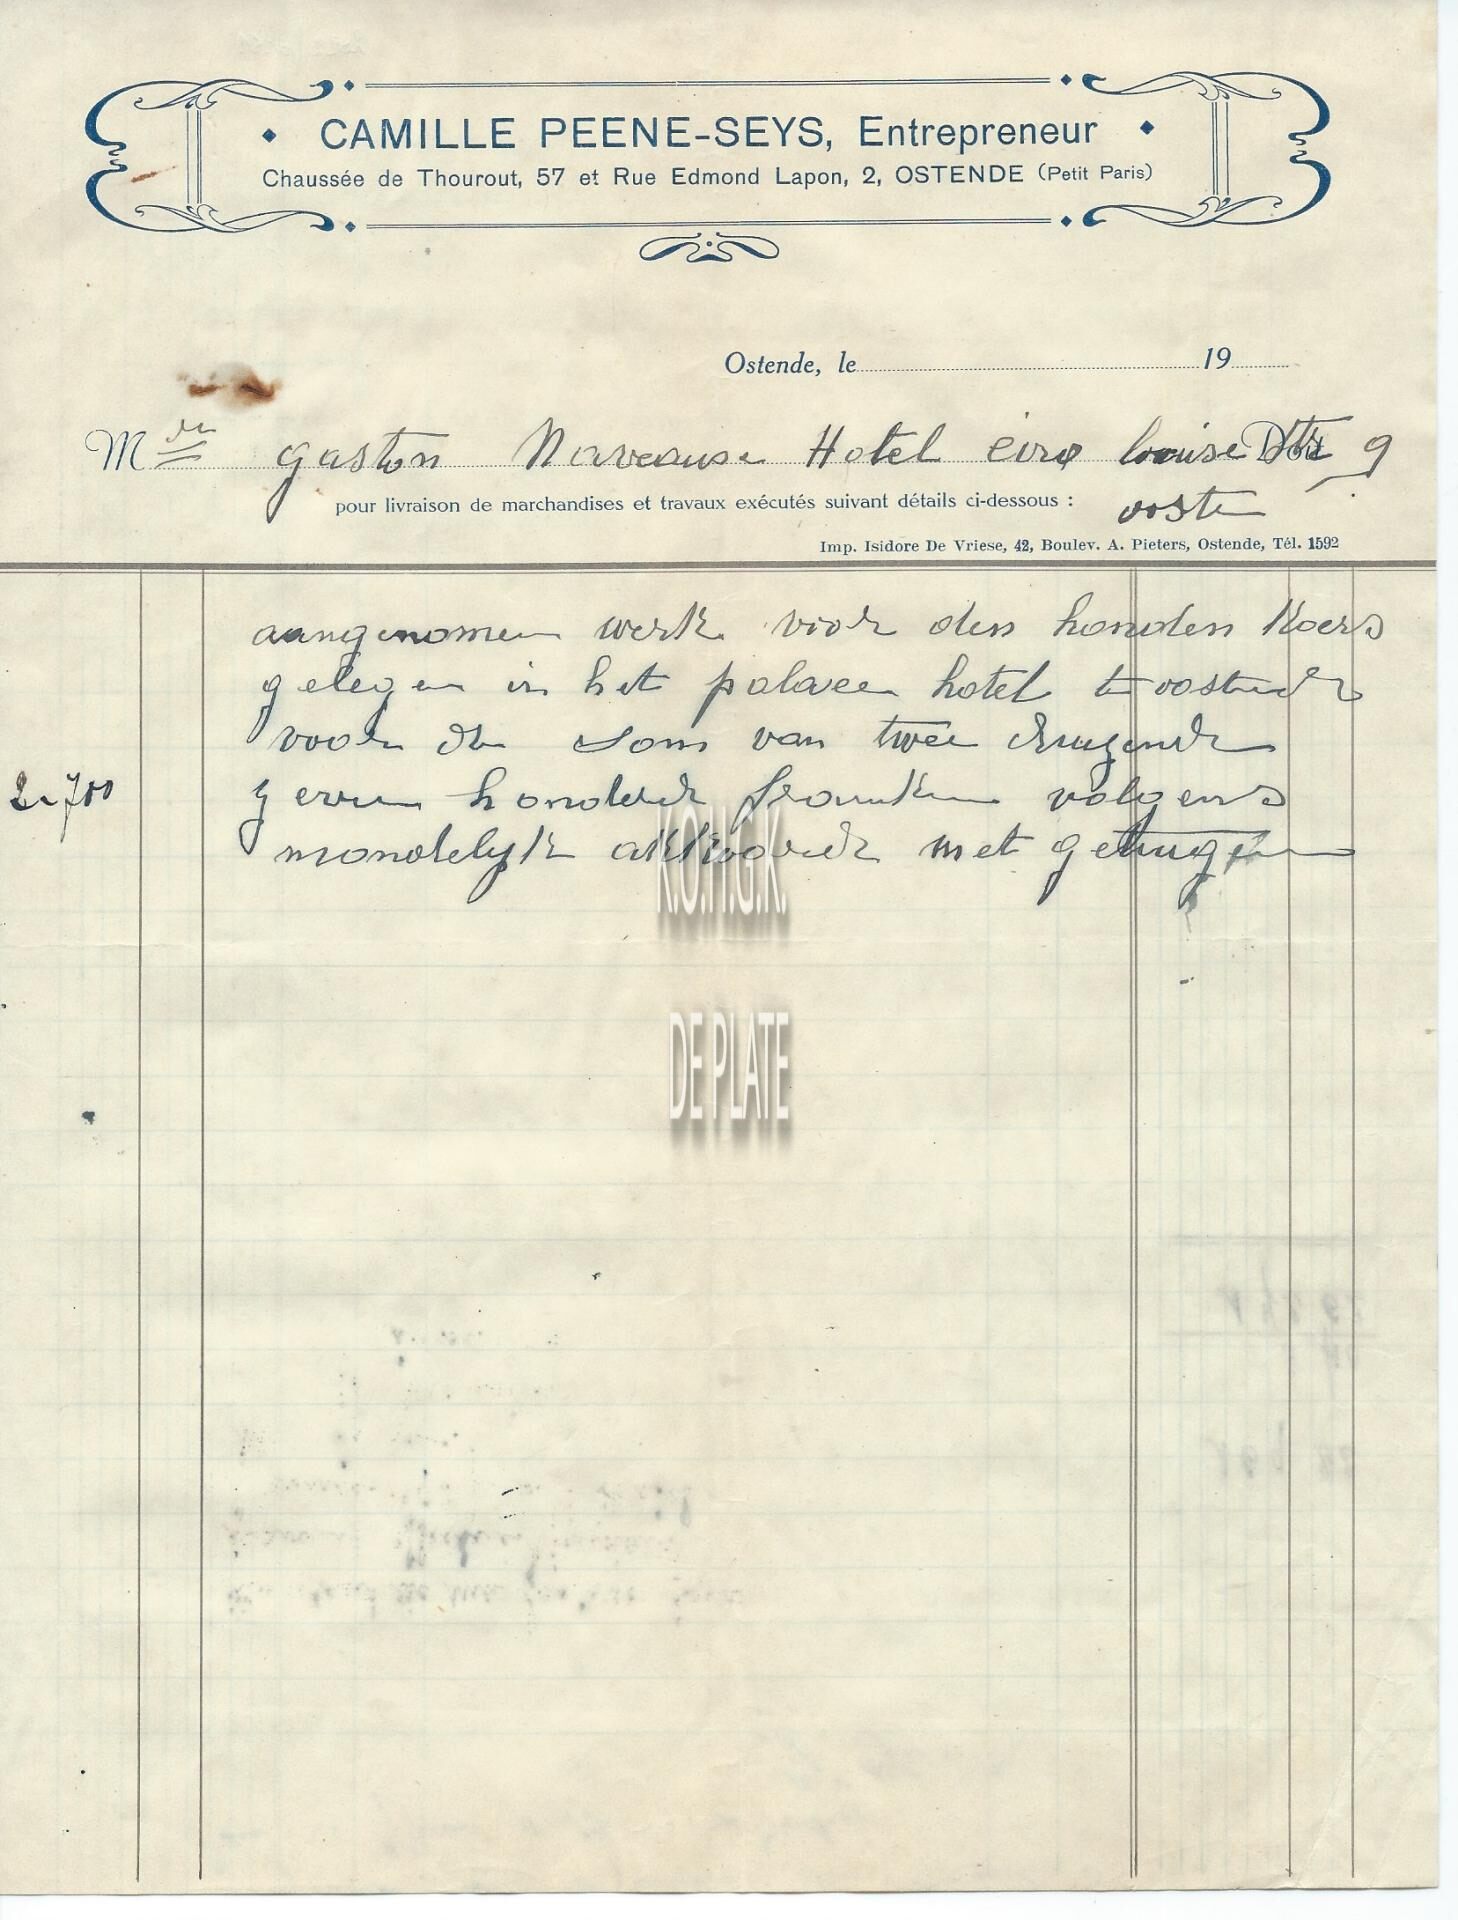 CAMILLE PEENE-SEYS, Entrepreneur
Chaussée de Thourout, 57 et Rue Edmond Lapon, 2, OSTENDE (Petit Paris)
Ostende, le 19
M gaston Hotel louise 9
pour livraison de marchandises et travaux exécutés suivant détails ci-dessous :
Imp. Isidore De Vriese, 42, Boulev. A. Pieters, Ostende, Tél. 1592
aangenomen werk voor den honden Koers
gelegen in het palacen hotel te oostende
voor de som van twee duizende
2-700 zeven honderd franken volgens
mondelyk akkoord met getuigen
K.O.H.G.K.
DE PLATE